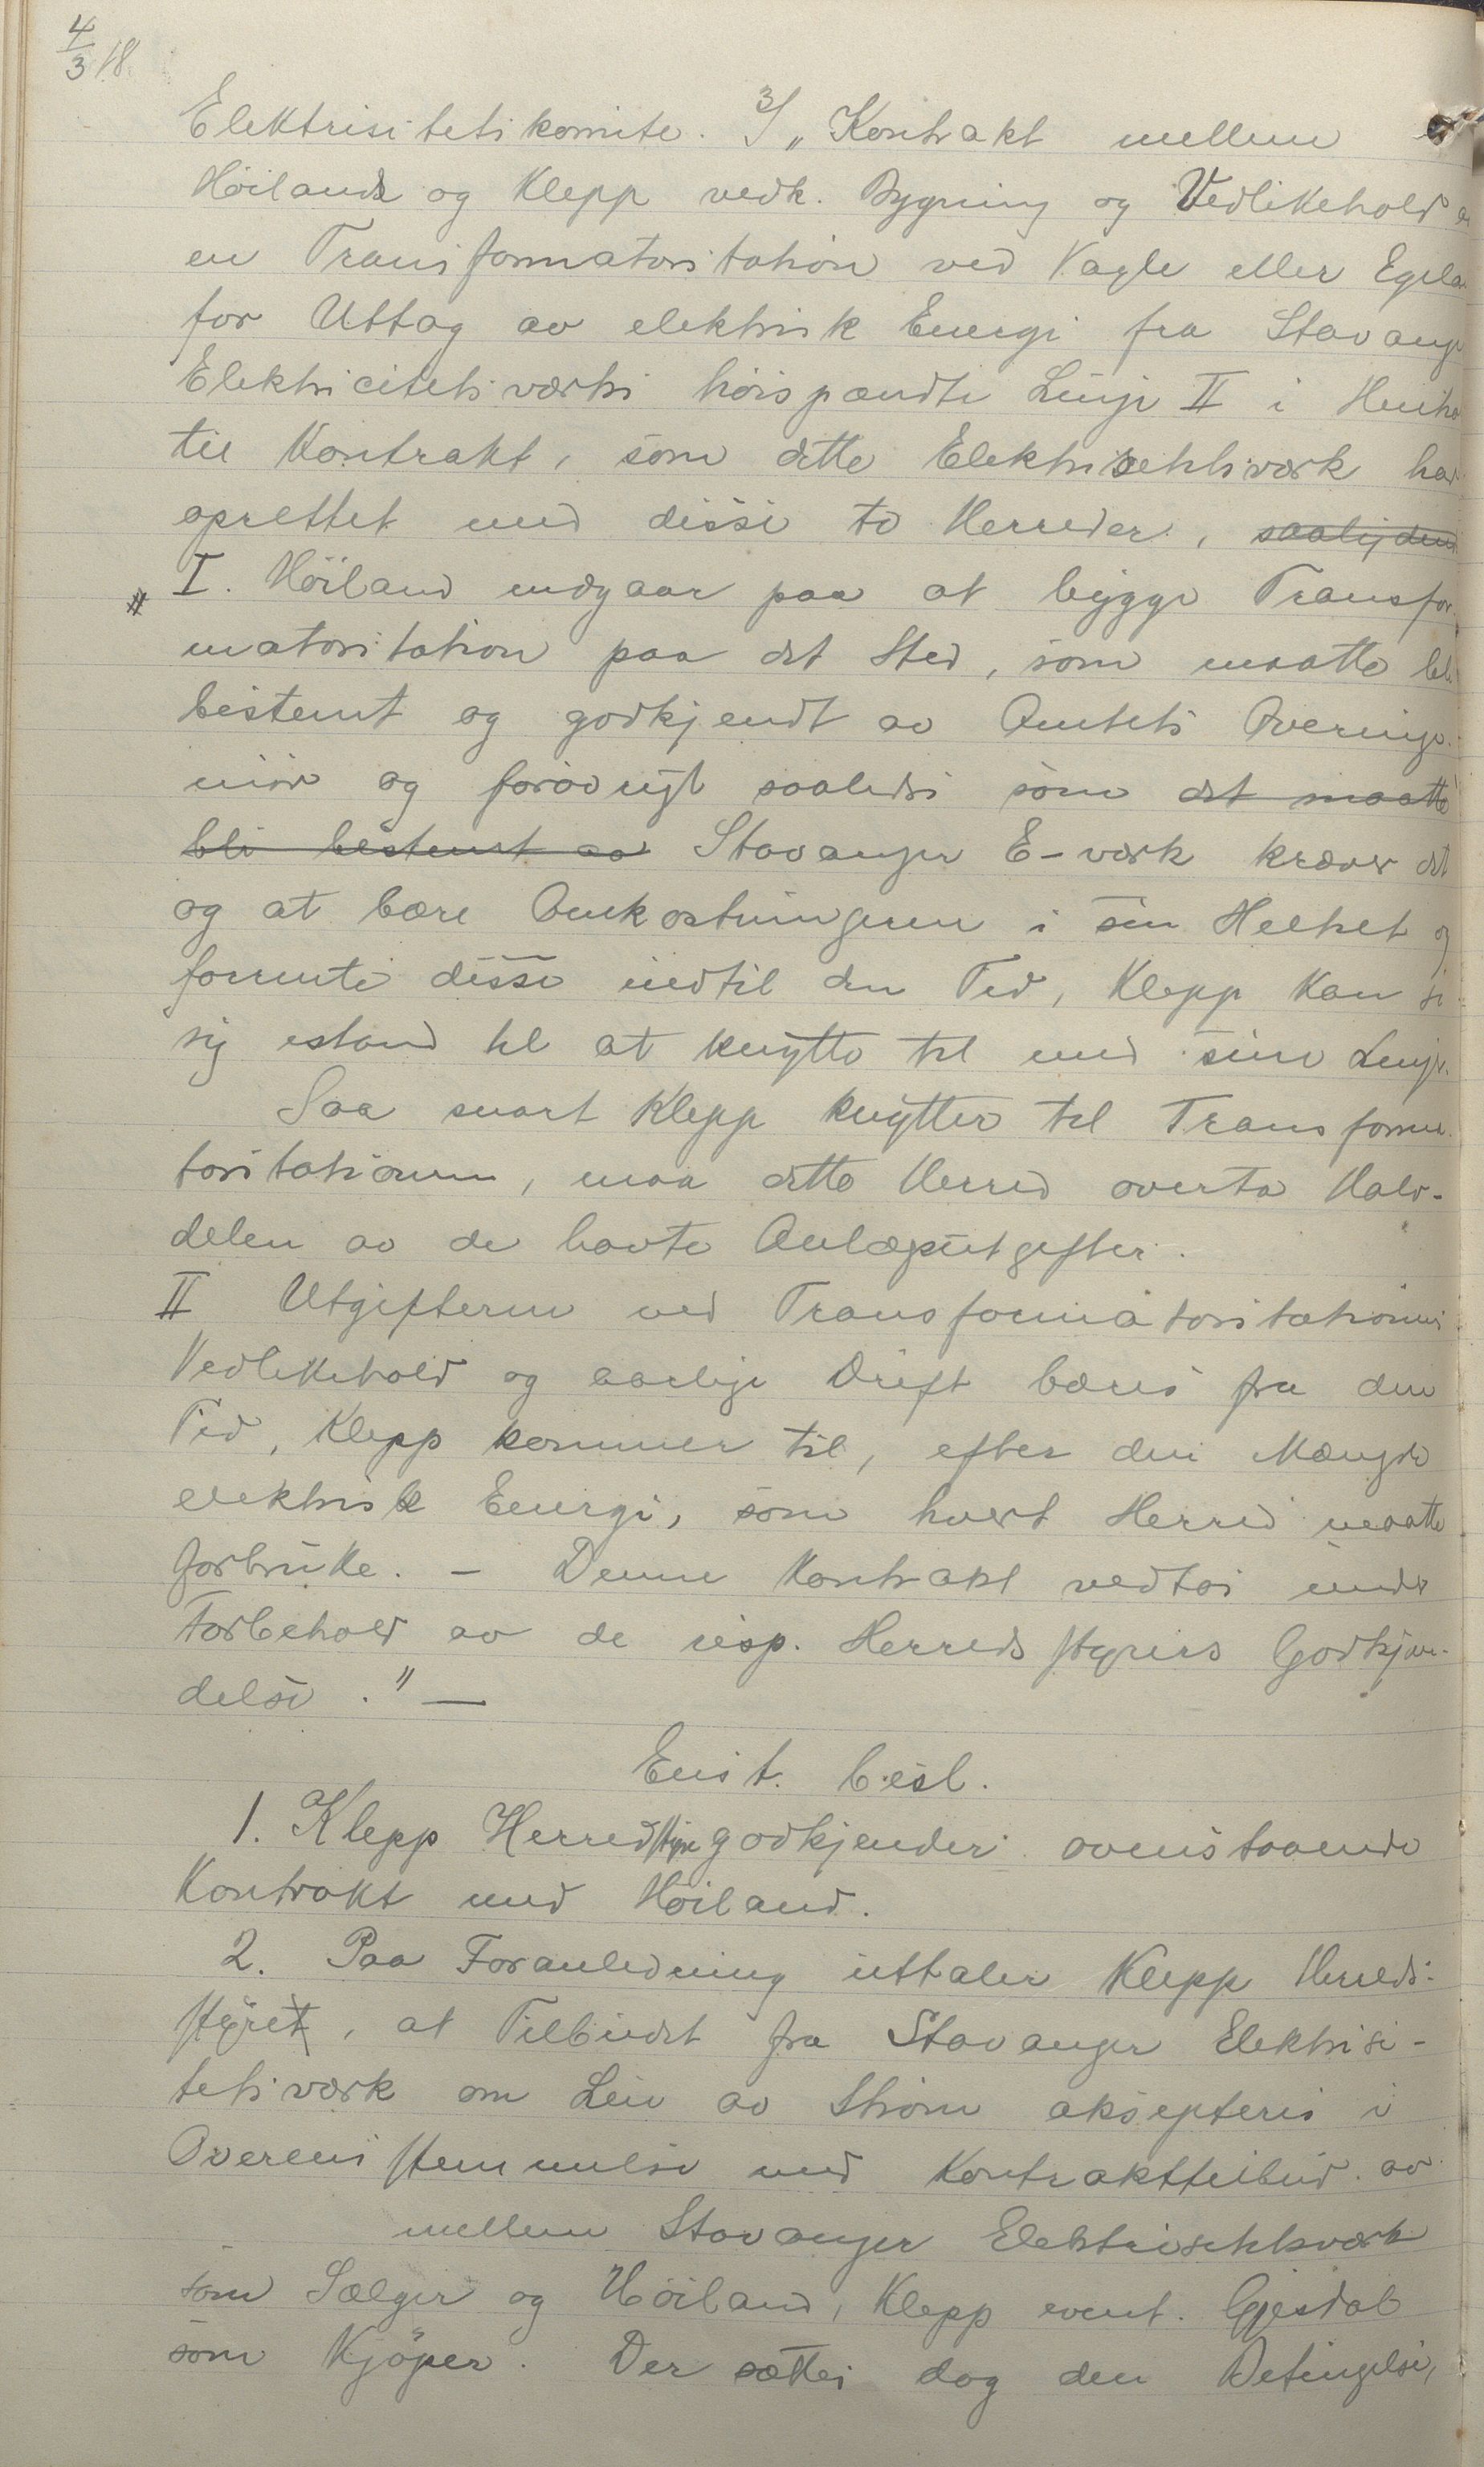 4/3 18.
Elektrisitetskomite. 3/ „Kontrakt mellem
Höiland og Klepp vedk. Bygning og Vedlikehold
en Transformatorstation ved Vagle eller Egela
for Uttag av elektrisk Energi fra Stavange
Elektricitetsværks höispændte Linje II i Henho
til Kontrakt, som dette Elektrisitetsværk har
oprettet med disse to Herreder, saalydend
# I. Höiland indgaar paa at bygge Transfor-
matorstation paa det Sted, som maatte bli
bestemt og godkjendt av Amtets Overinge-
niör og forövrigt saaledes som det maatte
bli bestemt av Stavanger E-verk kræver det
og at bære Omkostningerne i sin Helhet og
forrente disse indtil den Tid, Klepp kan se
sig istand til at knytte til med sine Linjer.
Saa snart Klepp knytter til Transforma-
torstationen, maa dette Herred overta Halv-
delen av de havte Anlægsutgifter.
II Utgifterne ved Transformatorstationens
Vedlikehold og aarlige Drift bæres fra den
Tid, Klepp kommer til, efter den Mængde
elektrisk Energi, som hvert Herred maatte
forbruke. — Denne Kontrakt vedtas under
Forbehold av de resp. Herredsstyrers Godkjen-
delse." —
Enst. besl.
1. Klepp Herredstyre godkjender ovenstaaende
Kontrakt med Höiland.
2. Paa Foranledning uttaler Klepp Herreds-
styret, at Tilbudet fra Stavanger Elektrisi-
tetsværk om Leie av Ström aksepteres i
Overensstemmelse med Kontrakttilbud av
mellem Stavanger Elektrisitetsværk
som Sælger og Höiland, Klepp event. Gjesdal
som Kjöper. Der sættes dog den Betingelse,